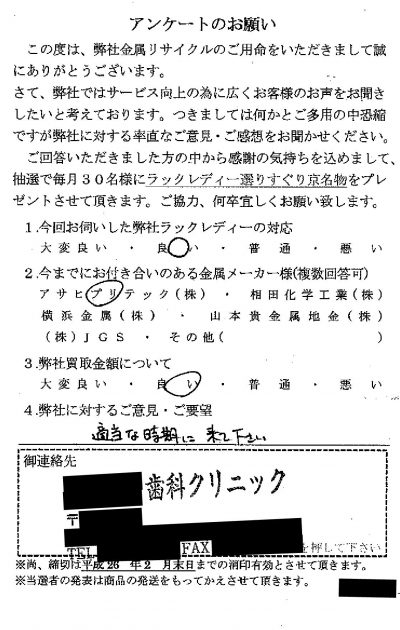 アンケートのお願い
この度は、弊社金属リサイクルのご用命をいただきまして誠
にありがとうございます。
さて、弊社ではサービス向上の為に広くお客様のお声をお聞き
したいと考えております。つきましては何かとご多用の中恐縮
ですが弊社に対する率直なご意見・ご感想をお聞かせください。
ご回答いただきました方の中から感謝の気持ちを込めまして、
抽選で毎月30名様にラックレディー選りすぐり京名物をプレ
ゼントさせて頂きます。ご協力、何卒宜しくお願い致します。
1.今回お伺いした弊社ラックレディーの対応
大変良い ・ 良い ・ 普通 ・ 悪い
2.今までにお付き合いのある金属メーカー様(複数回答可)
アサヒプリテック(株) ・ 相田化学工業(株)
横浜金属(株) ・ 山本貴金属地金(株)
(株)JGS ・ その他( )
3.弊社買取金額について
大変良い ・ 良い ・ 普通 ・ 悪い
4.弊社に対するご意見・ご要望
適当な時期に来て下さい
御連絡先
歯科クリニック
〒
TEL FAX を押して下さい
※尚、締切は平成26年2月末日までの消印有効とさせて頂きます。
※当選者の発表は商品の発送をもってかえさせて頂きます。